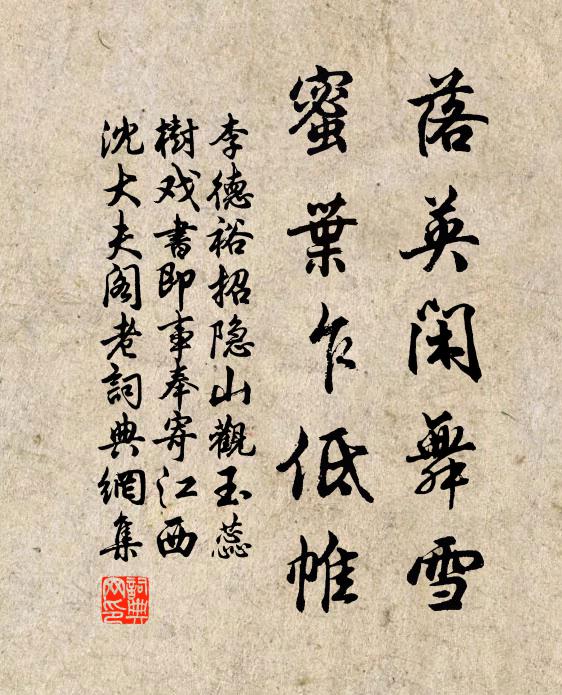 落英闲舞雪
蜜葉乍低帷
李德裕招隐山觀玉蕊
樹戏書即事奉寄江西
沈大夫阁老詞典網集
詞典網印